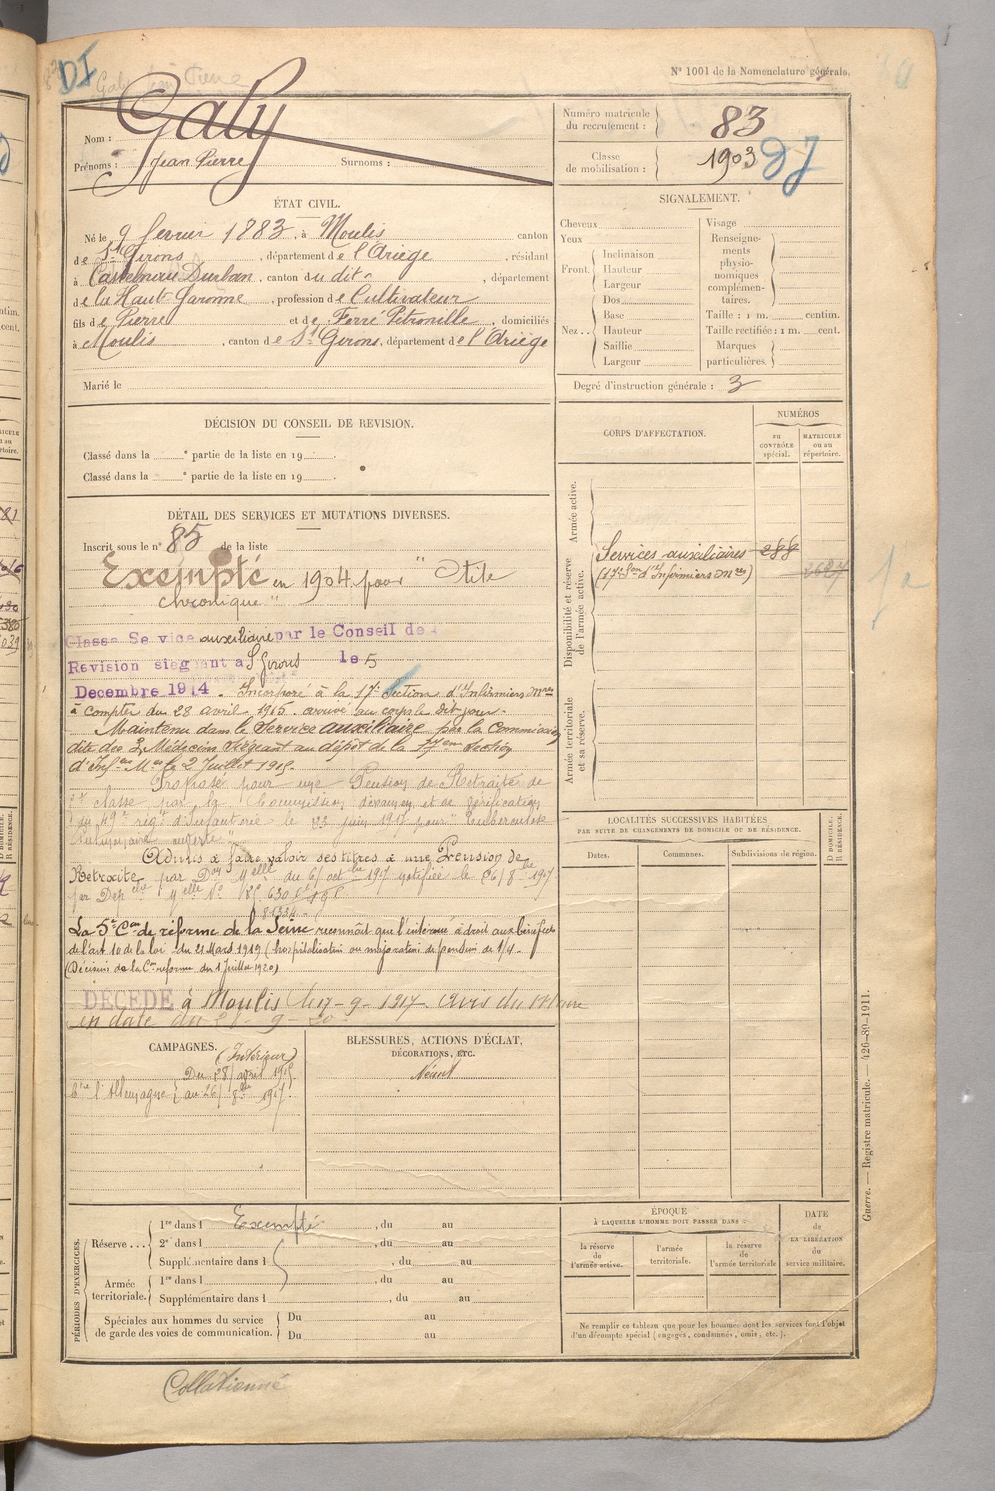 DI
Galy Jean Pierre
N° 1001 de la Nomenclature générale.
Galy
Nom :
Prénoms : Jean Pierre Surnoms :
Numéro matricule du recrutement : 83
Classe de mobilisation : 1903 DI
ÉTAT CIVIL.
Né le 9 fevrier 1883, à Moulis canton
de St Girons, département de l'Ariège, résidant
à Castelnau Durban, canton du dit, département
de la Haute Garonne, profession de Cultivateur
fils de Pierre et de Ferré Pétronille, domiciliés
à Moulis, canton de St Girons, département de l'Ariège
Marié le
SIGNALEMENT.
Cheveux
Yeux
Front.
Inclinaison
Hauteur
Largeur
Nez
Dos
Base
Hauteur
Saillie
Largeur
Visage
Renseignements physionomiques complémentaires.
Taille : 1 m. centim.
Taille rectifiée : 1 m. cent.
Marques particulières.
Degré d'instruction générale : 3
DÉCISION DU CONSEIL DE REVISION.
Classé dans la e partie de la liste en 19 .
Classé dans la e partie de la liste en 19 .
DÉTAIL DES SERVICES ET MUTATIONS DIVERSES.
Inscrit sous le n° 85 de la liste
Exempté en 1904 pour " Otite
chronique "
Classé Service auxiliaire par le Conseil de
Revision siegeant a St Girons le 5
Decembre 1914. Incorporé à la 17e Section d'Infirmiers Mres
à compter du 28 avril 1915. arrivé au corps le dit jour.
Maintenu dans le Service auxiliaire par la Commission
dite des 3 Médecins siégeant au dépôt de la 17eme Section
d'Infers Mres le 2 Juillet 1915.
Proposé pour une Pension de Retraite de
1re classe par la Commission d'examen et de vérification
du 49e régt d'Infanterie le 23 juin 1917 pour " Tuberculose
pulmonaire ouverte "
Admis à faire valoir ses titres à une Pension de
Retraite par Don Melle du 6 octbre 1917 notifiée le 26/8bre 1917
par Dép elle Melle N°
La 5e Con de réforme de la Seine reconnaît que l'intéressé a droit aux bénéfices
de l'art 10 de la loi du 31 Mars 1919 (hospitalisation ou majoration de pension de 1/4.
(Décision de la Con reforme du 1 Juillet 1920)
DÉCÉDÉ à Moulis le 17-9-1917 Avis du Maire
en date du 21-9-20
CORPS D'AFFECTATION.
NUMÉROS
au CONTRÔLE spécial.
MATRICULE ou au répertoire.
Armée active.
Disponibilité et réserve de l'armée active.
Services auxiliaires 288
(17e Son d'Infirmiers Mres)
Armée territoriale et sa réserve.
LOCALITÉS SUCCESSIVES HABITÉES
PAR SUITE DE CHANGEMENTS DE DOMICILE OU DE RÉSIDENCE.
Dates.
Communes.
Subdivisions de région.
D DOMICILE.
R RÉSIDENCE.
CAMPAGNES.
(Intérieur)
Du 28 avril 1915
Ctre l'Allemagne au 26 8bre 1917.
BLESSURES, ACTIONS D'ÉCLAT,
DÉCORATIONS, ETC.
Néant
PÉRIODES D'EXERCICES.
Réserve ...
1re dans l Exempté, du au
2e dans l , du au
Supplémentaire dans l , du au
Armée territoriale.
1re dans l , du au
Supplémentaire dans l , du au
Spéciales aux hommes du service de garde des voies de communication.
Du au
Du au
ÉPOQUE
À LAQUELLE L'HOMME DOIT PASSER DANS :
la réserve de l'armée active.
l'armée territoriale.
la réserve de l'armée territoriale
DATE de LA LIBÉRATION du service militaire.
Ne remplir ce tableau que pour les hommes dont les services font l'objet
d'un décompte spécial (engagés, condamnés, omis, etc.).
Guerre. — Registre matricule. — 426-89-1911.
Collationné